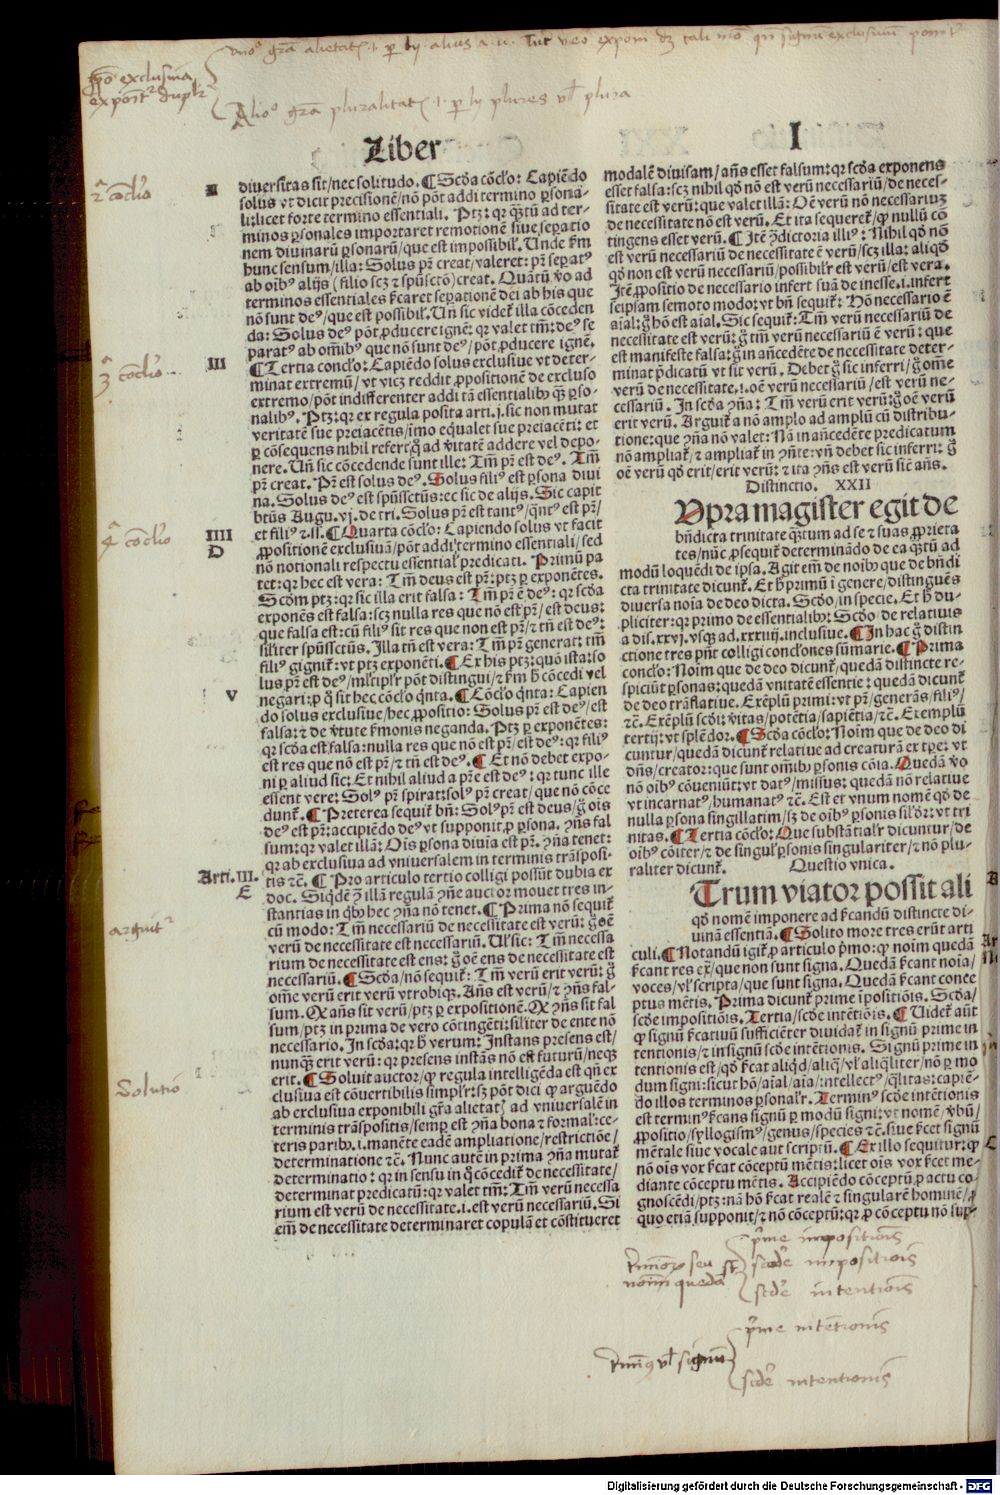 Liber I
diuersitas sit/nec solitudo. ¶ Scḋa cōclo: Capiēdo
solus vt dicit precisionē/nō pōt addi termino ꝑsona-
li: licet forte termino essentiali. Ptꝫ: qꝛ ꝙ̄tū ad ter-
minos ꝑsonales importaret remotionē siue seꝑatio
nem diuinarū ꝑsonarū/que est impossibil'. Unde km̄
hunc sensum/illa: Solus pr̄ creat/valeret: pr̄ seꝑatꝰ
ab oībꝰ alijs (filio scꝫ ⁊ spūsctō) creat. Quātū v̊o ad
terminos essentiales ſcaret seꝑationē dei ab his que
nō sunt deꝰ/que est possibil'. Uñ sic videt̄ illa cōceden
da: Solus deꝰ pōt ꝓducere ignē: qꝛ valet tm̄: deꝰ se
paratꝰ ab om̄ibꝰ que nō sunt deꝰ/pōt ꝓducere ignē.
III
¶ Tertia conclo: Capiēdo solus exclusiue vt deter-
minat extremū/vt vicꝫ reddit ꝓpositionē de excluso
extremo/pōt indifferenter addi tā essentialibꝰ ꝙ̄ ꝑso-
nalibꝰ. Ptꝫ: qꝛ ex regula posita arti.j. sic non mutat
veritatē sue preiacētis/īmo eq̄ualet sue preiacēti: et
ꝑ cōsequens nihil refert q̄ ad v̓itatē addere vel depo-
nere. Uñ sic cōcedende sunt ille: Tm̄ pr̄ est deꝰ. Tm̄
pr̄ creat. Pr̄ est solus deꝰ. Solus filiꝰ est ꝑsona diui
na. Solus deꝰ est spūssctūs: ⁊c sic de alijs. Sic capit
btūs Augu. vj. de tri. Solus pr̄ est tantꝰ/q̄ntꝰ est pr̄/
IIII
et filiꝰ ⁊ ss. ¶ Quarta cōclo: Capiendo solus vt facit
D
ꝓpositionē exclusiuā/pōt addi termino essentiali/sed
nō notionali respectu essential' predicati. Primū pa
tet: qꝛ hec est vera: Tm̄ deus est pr̄: ptꝫ ꝑ exponētes.
Scḋm ptꝫ: qꝛ sic illa erit falsa: Tm̄ pr̄ ē deꝰ: qꝛ scḋa
exponēs est falsa: scꝫ nulla res que nō est pr̄/est deus:
que falsa est: cū filiꝰ sit res que non est pr̄/⁊ tn̄ est deꝰ:
silīter spūssctūs. Illa tn̄ est vera: Tm̄ pr̄ generat: tm̄
filiꝰ gignit̄: vt ptꝫ exponēti. ¶ Ex his ptꝫ: quō ista: so
lus pr̄ est deꝰ/ml'cipl'r pōt distingui/⁊ km̄ h̄ cōcedi vel
V
negari: ꝓ q̄ sit hec cōclo q̄nta. ¶ Cōclo q̄nta: Capien
do solus exclusiue/hec ꝓpositio: Solus pr̄ est deꝰ/est
falsa: ⁊ de v̓tute ẜmonis neganda. Ptꝫ ꝑ exponētes:
qꝛ scḋa est falsa: nulla res que nō est pr̄/est deꝰ: qꝛ filiꝰ
est res que nō est pr̄/⁊ tn̄ est deꝰ. ¶ Et nō debet expo-
ni ꝑ aliud sic: Et nihil aliud a pr̄e est deꝰ: qꝛ tunc ille
essent vere: Solꝰ pr̄ spirat: solꝰ pr̄ creat/que nō cōce
dunt̄. ¶ Preterea sequit̄ bñ: Solꝰ pr̄ est deus/g̊ ois
deꝰ est pr̄: accipiēdo deꝰ vt supponit ꝓ ꝑsona. Ꝯñs fal
sum: qꝛ valet illā: Ois ꝑsona diuia est pr̄. Ꝯña tenet:
qꝛ ab exclusiua ad vniuersalem in terminis trāsposi-
Arti.III.
tis ⁊c. ¶ Pro articulo tertio colligi possūt dubia ex
E
doc. Siqdē ꝯ̄ illā regulā ꝯñe auctor mouet tres in-
stantias in qbꝰ hec ꝯña nō tenet. ¶ Prima nō sequit̄
cū modo: Tm̄ necessariū de necessitate est verū: g̊ oē
verū de necessitate est necessariū. Ul' sic: Tm̄ necessa
rium de necessitate est ens: g̊ oē ens de necessitate est
necessariū. ¶ Scḋa/nō sequit̄: Tm̄ verū erit verū: g̊
om̄e verū erit verū vtrobiqꝫ. Añs est verū/⁊ ꝯñs fal-
sum. Ꝙ añs sit verū/ptꝫ ꝑ expositionē. Ꝙ ꝯñs sit fal
sum/ptꝫ in prima de vero cōtingēti: silīter de ente nō
necessario. In scḋa: qꝛ h̄ verum: Instans presens est/
nunqꝫ erit verū: qꝛ presens instās nō est futurū/neqꝫ
erit. ¶ Soluit auctor/ꝙ regula intelligēda est qñ ex
clusiua est cōuertibilis simpl'r: sꝫ pōt dici ꝙ arguēdo
ab exclusiua exponibili gr̄a alietatꝭ ad vniuersalē in
terminis trāspositis/semꝑ est ꝯña bona ⁊ formal': ce-
teris paribꝰ.i. manēte eadē ampliatione/restrictiōe/
determinatione ⁊c. Nunc autē in prima ꝯña mutat̄
determinatio: qꝛ in sensu in q̊ cōcedit̄ de necessitate/
determinat predicatū: qꝛ valet tm̄: Tm̄ verū necessa
rium est verū de necessitate.i. est verū necessariū. Si
em̄ de necessitate determinaret copulā et cōstitueret
modalē diuisam/añs esset falsum: qꝛ scḋa exponens
esset falsa: scꝫ nihil qḋ nō est verū necessariū/de neces-
sitate est verū: que valet illā: Oē verū nō necessariuꝫ
de necessitate nō est verū. Et ita sequeret̄/ꝙ nullū cō
tingens esset verū. ¶ Itē ꝯ̄dictoria illiꝰ: Nihil qḋ nō
est verū necessariū de necessitate ē verū/scꝫ illa: aliqḋ
qḋ non est verū necessariū/possibil'r est verū/est vera.
Itē ꝓpositio de necessario infert suā de inesse.i. infert
seipsam semoto modo: vt bñ sequit̄: Hō necessario ē
aīal: g̊ hō est aīal. Sic sequit̄: Tm̄ verū necessariū de
necessitate est verū: g̊ tm̄ verū necessariū ē verū: que
est manifeste falsa: g̊ in añcedēte de necessitate deter-
minat p̄dicatū vt sit verū. Debet g̊ sic inferri/g̊ om̄e
verū de necessitate.i. oē verū necessariū/est verū ne-
cessariū. In scḋa ꝯña: Tm̄ verū erit verū: g̊ oē verū
erit verū. Arguit̄ a nō amplo ad amplū cū distribu-
tione: que ꝯña nō valet: Nā in añcedēte predicatum
nō ampliat̄/⁊ ampliat̄ in ꝯñte: vñ debet sic inferri: g̊
oē verū qḋ erit/erit verū: ⁊ ita ꝯñs est verū sicut añs.
Distinctio. XXII
Upra magister egit de
bñdicta trinitate ꝙ̄tum ad se ⁊ suas ꝓprieta
tes/nūc ꝓsequit̄ determinādo de ea ꝙ̄tū ad
modū loquēdi de ipsa. Agit em̄ de noībꝰ que de bñdi
cta trinitate dicunt̄. Et h̄ primū ī genere/distinguēs
diuersa noīa de deo dicta. Scḋo/in specie. Et h̄ du-
pliciter: qꝛ primo de essentialibꝰ: Scḋo de relatiuis
a dis. xxvj. vsqꝫ ad. xxxiiij. inclusiue. ¶ In hac g̊ distin
ctione tres pn̄t colligi conclōnes sūmarie. ¶ Prima
conclo: Noīm que de deo dicunt̄/quedā distincte re-
spiciūt ꝑsonas: quedā vnitatē essentie: quedā dicunt̄
de deo trāslatiue. Exēplū primi: vt pr̄/generās/filiꝰ/
⁊c. Exēplū scḋi: v̓itas/potētia/sapiētia/⁊c. Exemplū
tertij: vt splēdor. ¶ Scḋa cōclo: Noīm que de deo di
cuntur/quedā dicunt̄ relatiue ad creaturā ex tꝑe: vt
dn̄s/creator: que sunt om̄ibꝰ ꝑsonis cōia. Quedā v̊o
nō oībꝰ cōueniūt: vt datꝰ/missus: quedā nō relatiue
vt incarnatꝰ/humanatꝰ ⁊c. Est et vnum nomē qḋ de
nulla ꝑsona singillatim/sꝫ de oībꝰ ꝑsonis sil' dꝛ: vt tri
nitas. ¶ Tertia cōclo: Que substātial'r dicuntur/de
oībꝰ cōiter/⁊ de singul' ꝑsonis singulariter/⁊ nō plu-
raliter dicunt̄. Questio vnica.
Trum viator possit ali
qḋ nomē imponere ad ſcandū distincte di-
uinā essentiā. ¶ Solito more tres erūt arti
culi. ¶ Notandū igit̄ ꝓ articulo p̄mo: ꝙ noīm quedā
ſcant res ex̄/que non sunt signa. Quedā ſcant noīa/
voces/vl' scripta/que sunt signa. Quedā ſcant conce
ptus mētis. Prima dicunt̄ prime īpositiōis. Scḋa/
scḋe impositiōis. Tertia/scḋe intētiōis. ¶ Uidet̄ aūt
ꝙ signū ſcatiuū sufficiēter diuidat̄ in signū prime in
tentionis/⁊ in signū scḋe intētionis. Signū prime in
tentionis est/qḋ ſcat aliqd/aliqꝫ/vl' aliqliter/nō ꝑ mo
dum signi: sicut hō/aīal/aīa/intellectꝰ/q̄litas: capiē-
do illos terminos ꝑsonal'r. Terminꝰ scḋe intētionis
est terminꝰ ſcans signū ꝑ modū signi: vt nomē/v̓bū/
ꝓpositio/syllogismꝰ/genus/species ⁊c. siue ſcet signū
mētale siue vocale aut scriptū. ¶ Ex illo sequitur: ꝙ
nō ois vox ſcat cōceptū mētis: licet ois vox ſcet me-
diante cōceptu mētis. Accipiēdo cōceptū ꝓ actu co-
gnoscēdi/ptꝫ: nā hō ſcat realē ⁊ singularē hominē/ꝓ
quo etiā supponit/⁊ nō cōceptū: qꝛ ꝓ cōceptu nō sup-
prīe impositionis
scḋe impositionis
scḋe intentionis
prīe intentionis
scḋe intentionis
Digitalisierung gefördert durch die Deutsche Forschungsgemeinschaft - DFG